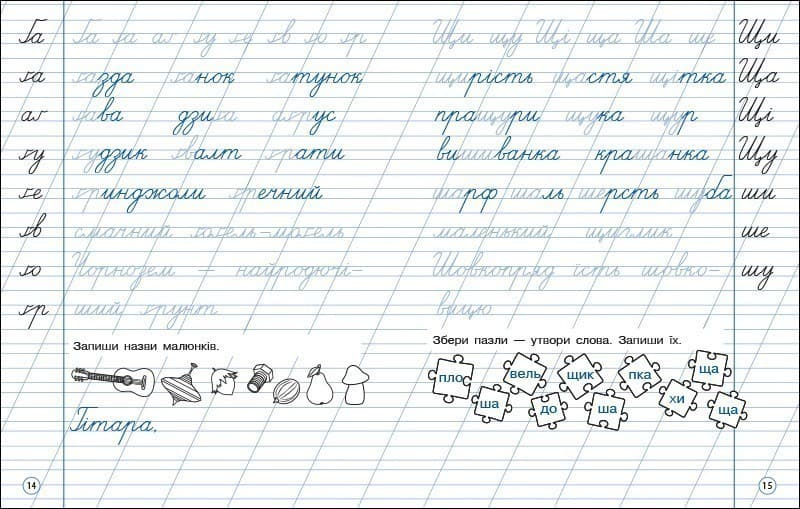 Ґа Ґа ґа аґ ґу ґе ґв ґо ґр
ґа ґазда ґанок ґатунок
аґ ґава дзиґа аґрус
ґу ґудзик ґвалт ґрати
ґе ґринджоли ґречний
ґв смачний ґоґель-моґель
ґо Чорнозем — найродючі-
ґр ший ґрунт
Запиши назви малюнків.
Гітара.
14
Щи щу Щі ща Ша ше Щи
щирість щастя щітка Ща
пращури щука щур Щі
вишиванка крашанка Щу
шарф шаль шерсть шуба ши
маленький щиглик ше
Шовкопряд їсть шовко- шу
вицю
Збери пазли — утвори слова. Запиши їх.
пло вель щик пка ща
ша до ша хи ща
15